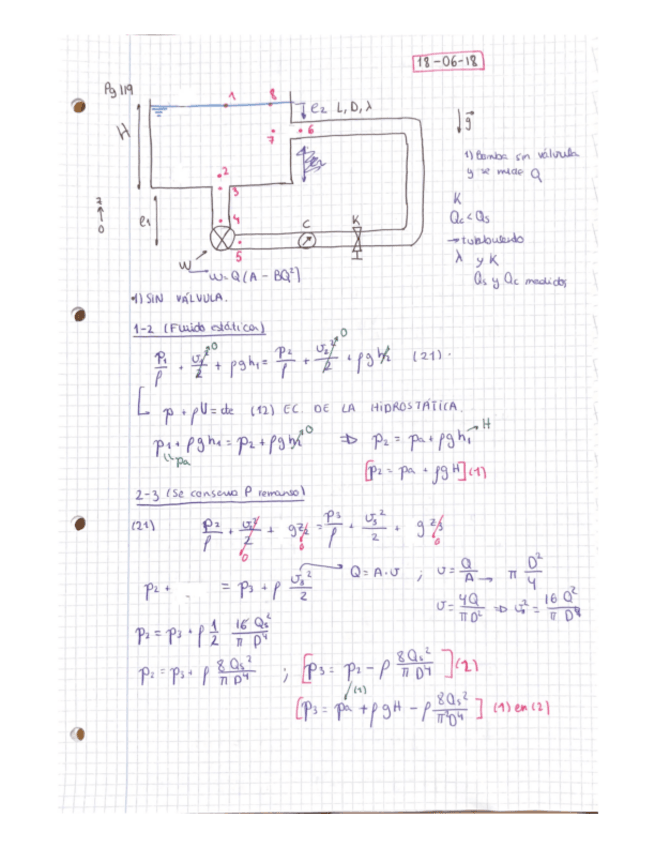 18-06-18
Pg 119
1 8
e2 L, D, λ
H
7 6
g
1) Bomba sin válvula
y se mide Q
2
3
K
Qc < Qs
→ turbulento
λ y K
Qs y Qc medidos
z
0
e1
4
C K
5
W
W = Q(A - BQ²)
1) SIN VÁLVULA.
1-2 (Fluido estático)
P1/ρ + v1²/2 →0 + ρgh1 = P2/ρ + v2²/2 →0 + ρgh2 (21).
p + ρU = cte (12) EC. DE LA HIDROSTÁTICA.
P1 + ρgh1 = P2 + ρgh2 →0 ⇒ P2 = Pa + ρgh1 →H
" Pa
[P2 = Pa + ρgH] (1)
2-3 (Se conserva P remanso)
(21) P2/ρ + v2²/2 + gz2 = P3/ρ + v3²/2 + gz3
0 0 0
P2 + = P3 + ρ v3²/2 → Q = A·v ; v = Q/A → π D²/4
v = 4Q/πD² ⇒ v3² = 16Q²/πD⁴
P2 = P3 + ρ 1/2 16Qs²/πD⁴
P2 = P3 + ρ 8Qs²/πD⁴ ; [P3 = P2 - ρ 8Qs²/πD⁴] (2)
(1)
[P3 = Pa + ρgH - ρ 8Qs²/π²D⁴] (1) en (2)